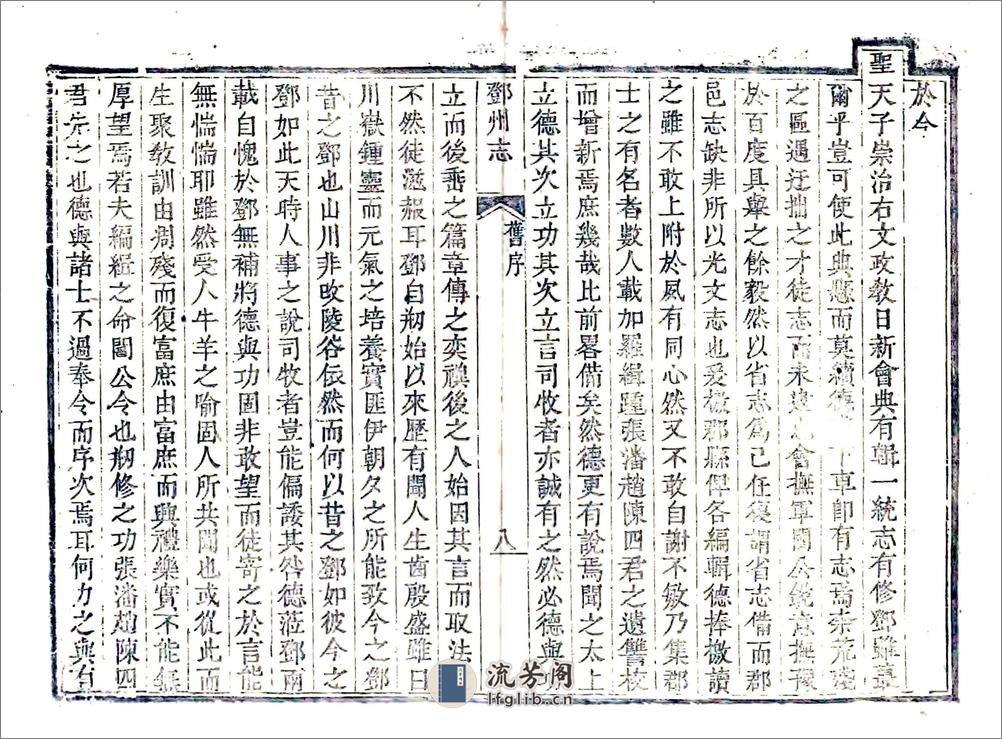 於今
聖天子崇治右文政教日新會典有輯一統志有修鄧雖蕞
爾乎豈可使此典懸而莫續德下車即有志焉奈荒殘
之區遇迂拙之才徒志而未逮會撫軍閻公統言撫豫
於百度具舉之餘毅然以省志爲己任復謂省志備而郡
邑志缺非所以光文志也爰檄郡縣俾各編輯德捧檄讀
之雖不敢上附於夙有同心然又不敢自謝不敏乃集郡
士之有名者數人載加羅緝踵張潘趙陳四君之遺讐校
而增新焉庶幾哉比前畧備矣然德更有說焉聞之太上
立德其次立功其次立言司牧者亦誠有之然必德與功
鄧州志
舊序
八
立而後垂之篇章傳之奕禩後之人始因其言而取法
不然徒滋報耳鄧自剏始以來歷有聞人生齒殷盛雖曰
川嶽鍾靈而元氣之培養實匪伊朝夕之所能致今之鄧
昔之鄧也山川非改陵谷依然而何以昔之鄧如彼今之
鄧如此天時人事之說司牧者豈能偏諉其咎德蒞鄧兩
載自愧於鄧無補將德與功固非敢望而徒寄之於言能
無惴惴耶雖然受人牛羊之喻固人所共聞也或從此而
生聚教訓由凋殘而復富庶由富庶而興禮樂實不能無
厚望焉若夫編緝之命閻公今也剏修之功張潘趙陳四
君先之也德與諸士不過奉令而序次焉耳何力之與有
流芳阁
lfglib.cn